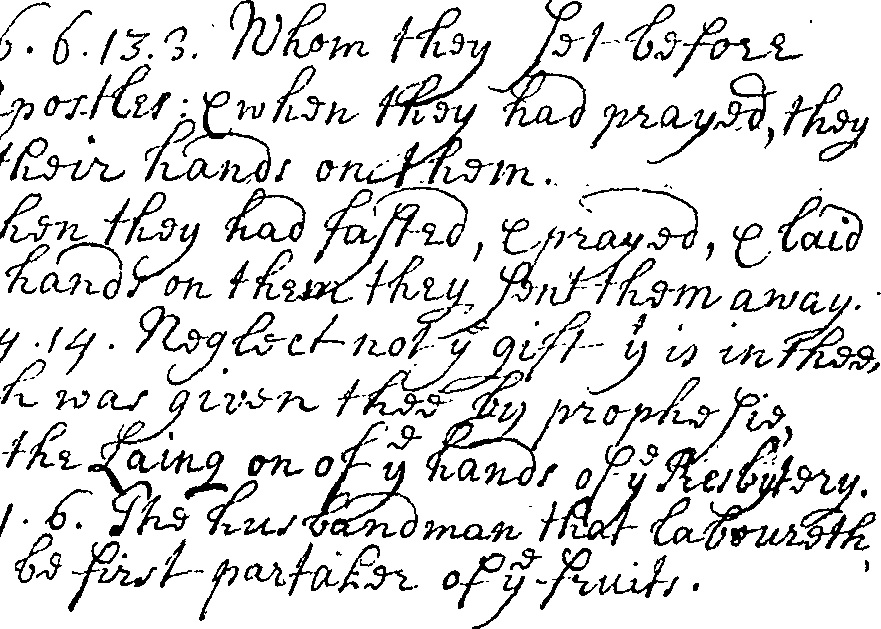 6. 6. 13. 3. Whom they set before
postles: & when they had prayed, they
their hands on them.
hen they had fasted, & prayed, & laid
hands on them they sent them away.
4. 14. Neglect not yᵉ gift yᵗ is in thee,
h was given thee by prophesie,
the Laing on of yᵉ hands of yᵉ Presbytery.
1. 6. The husbandman that laboureth,
be first partaker of yᵉ fruits.